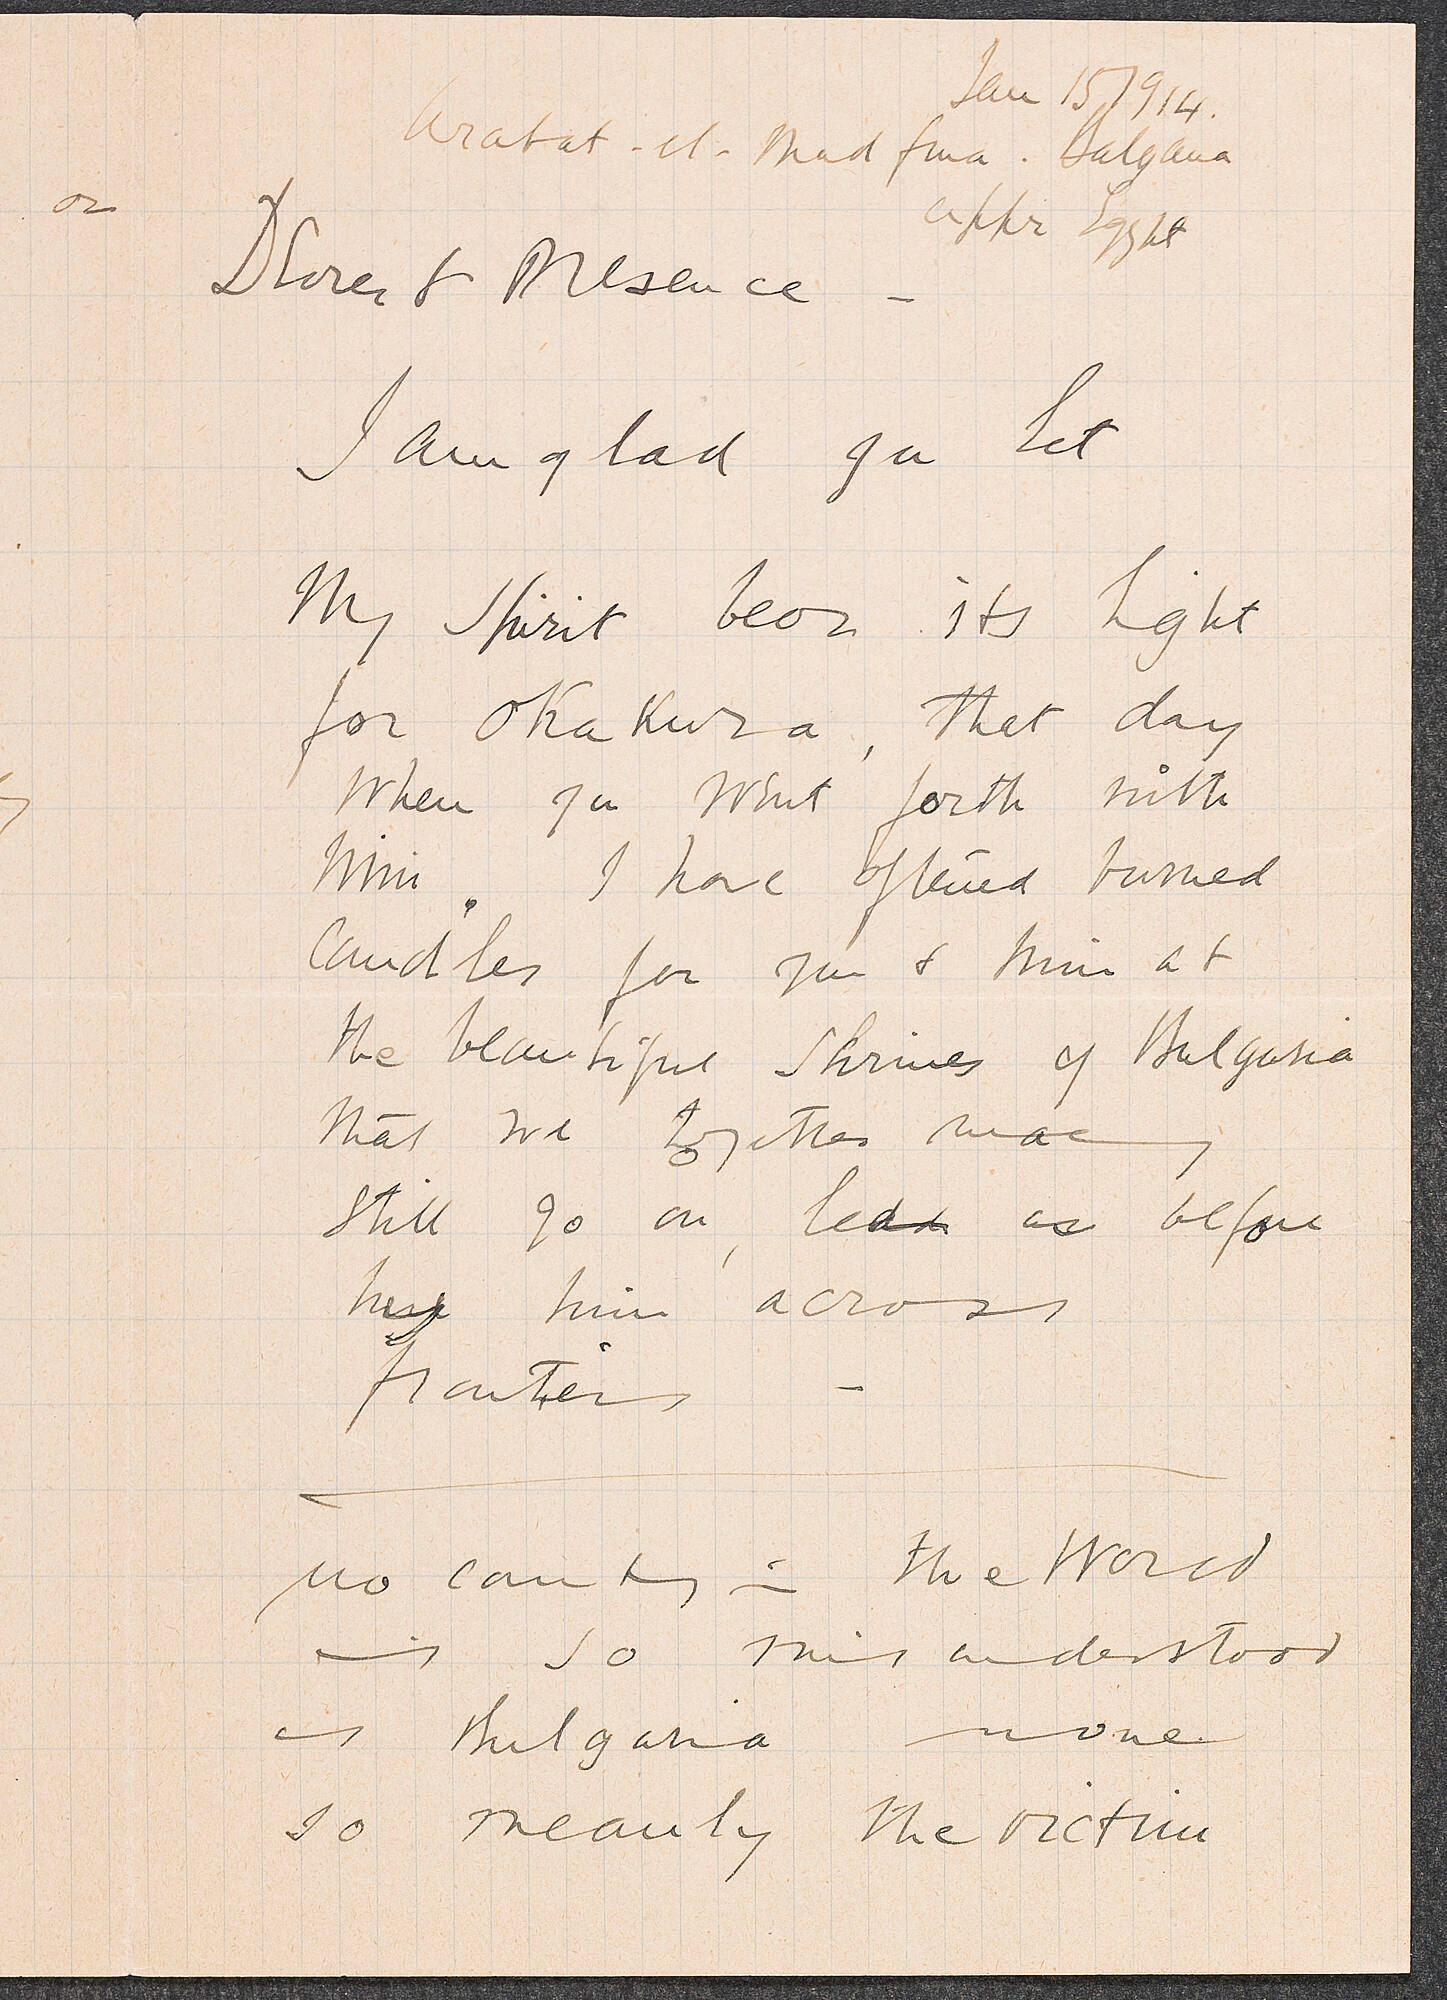 Jan 15/914.
Arabat-el-Madfuna. Balyana
upper Egypt
or
Dearest Presence -
I am glad you let
My Spirit bear its light
for Okakura, that day
when you went forth with
him. I have oftened burned
candles for you & him at
the beautiful Shrines of Bulgaria
that we together may
still go on, as before
him across
frontiers -
no country in the World
is so misunderstood
as Bulgaria none
so meanly the victim